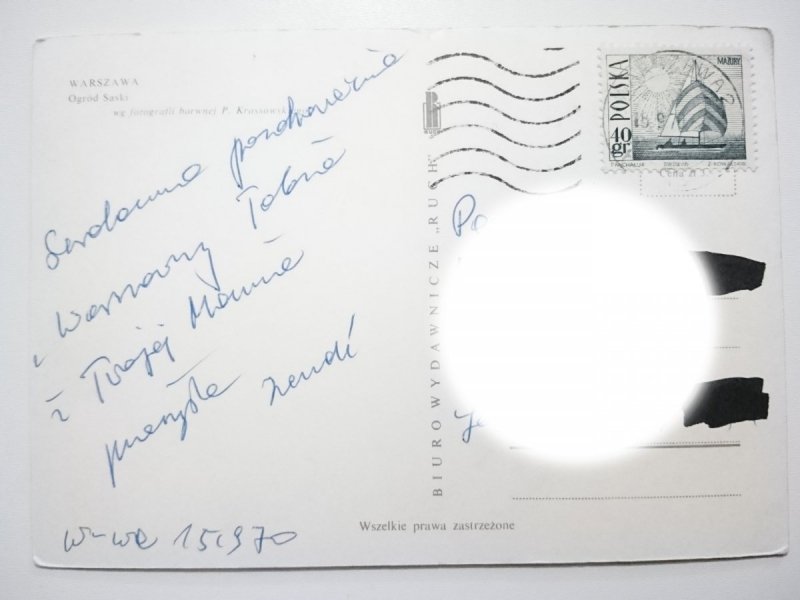 WARSZAWA
Ogród Saski
wg fotografii barwnej P. Krassowskiego
Serdeczne pozdrowienia
z Warszawy Tobie
i Twojej Mamie
przesyła
W-wa 15.9.70
BIURO WYDAWNICZE „RUCH"
RUCH
POLSKA
MAZURY
40 gr
Wszelkie prawa zastrzeżone